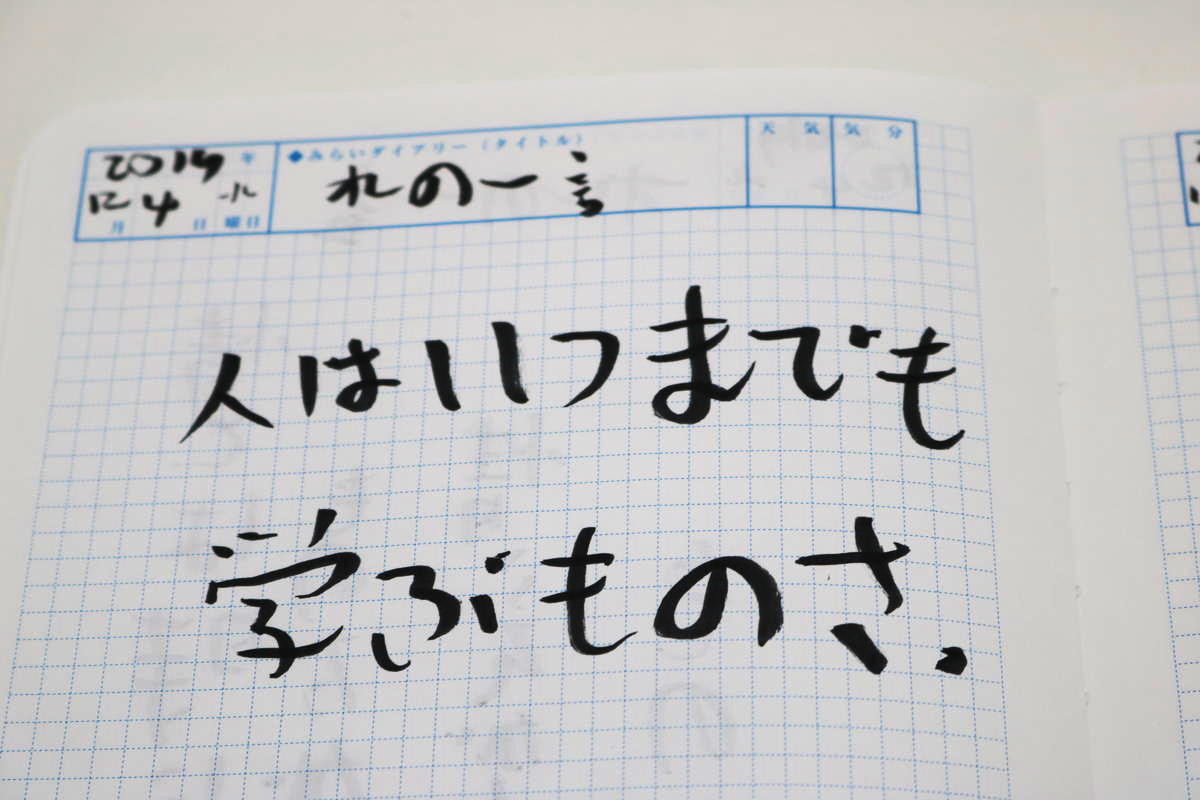 2019年
12月4日 水曜日
◆みらいダイアリー（タイトル）
れの一言
天気
気分
人はいつまでも
学ぶものさ。